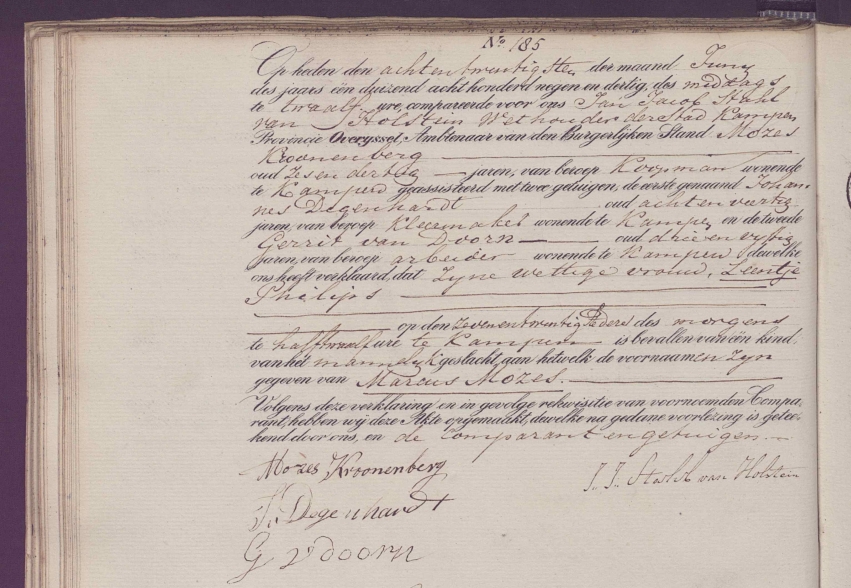 No 185
Op heden den achtentwintigsten der maand Juny
des jaars een duizend acht honderd negen en dertig, des middags
te twaalf ure, compareerde voor ons Jan Jacob Stahl
van Holstein Wethouder der stad Kampen
Provincie Overyssel, Ambtenaar van den Burgerlijken Stand Mozes
Kroonenberg
oud zes en dertig jaren, van beroep Koopman wonende
te Kampen geassisteerd met twee getuigen, de eerste genaamd Johan
nes Degenhardt oud acht en veertig
jaren, van beroep Kleermaker wonende te Kampen en de tweede
Gerrit van Doorn oud drie en vyftig
jaren, van beroep arbeider wonende te Kampen dewelke
ons heeft verklaard, dat Zyne wettige vrouw, Leentje
Philips
op den zevenentwintig dezer des morgens
te half twaalf ure te Kampen is bevallen van een kind
van het mannelyk geslacht, aan hetwelk de voornaamen zyn
gegeven van Marcus Mozes.
Volgens deze verklaring en in gevolge rekwisitie van voornoemden Compa-
rant, hebben wij deze Akte opgemaakt, dewelke na gedane voorlezing is getee-
kend door ons, en de Comparant en getuigen.
Mozes Kroonenberg
J. J. Stahl van Holstein
J. Degenhardt
G v doorn